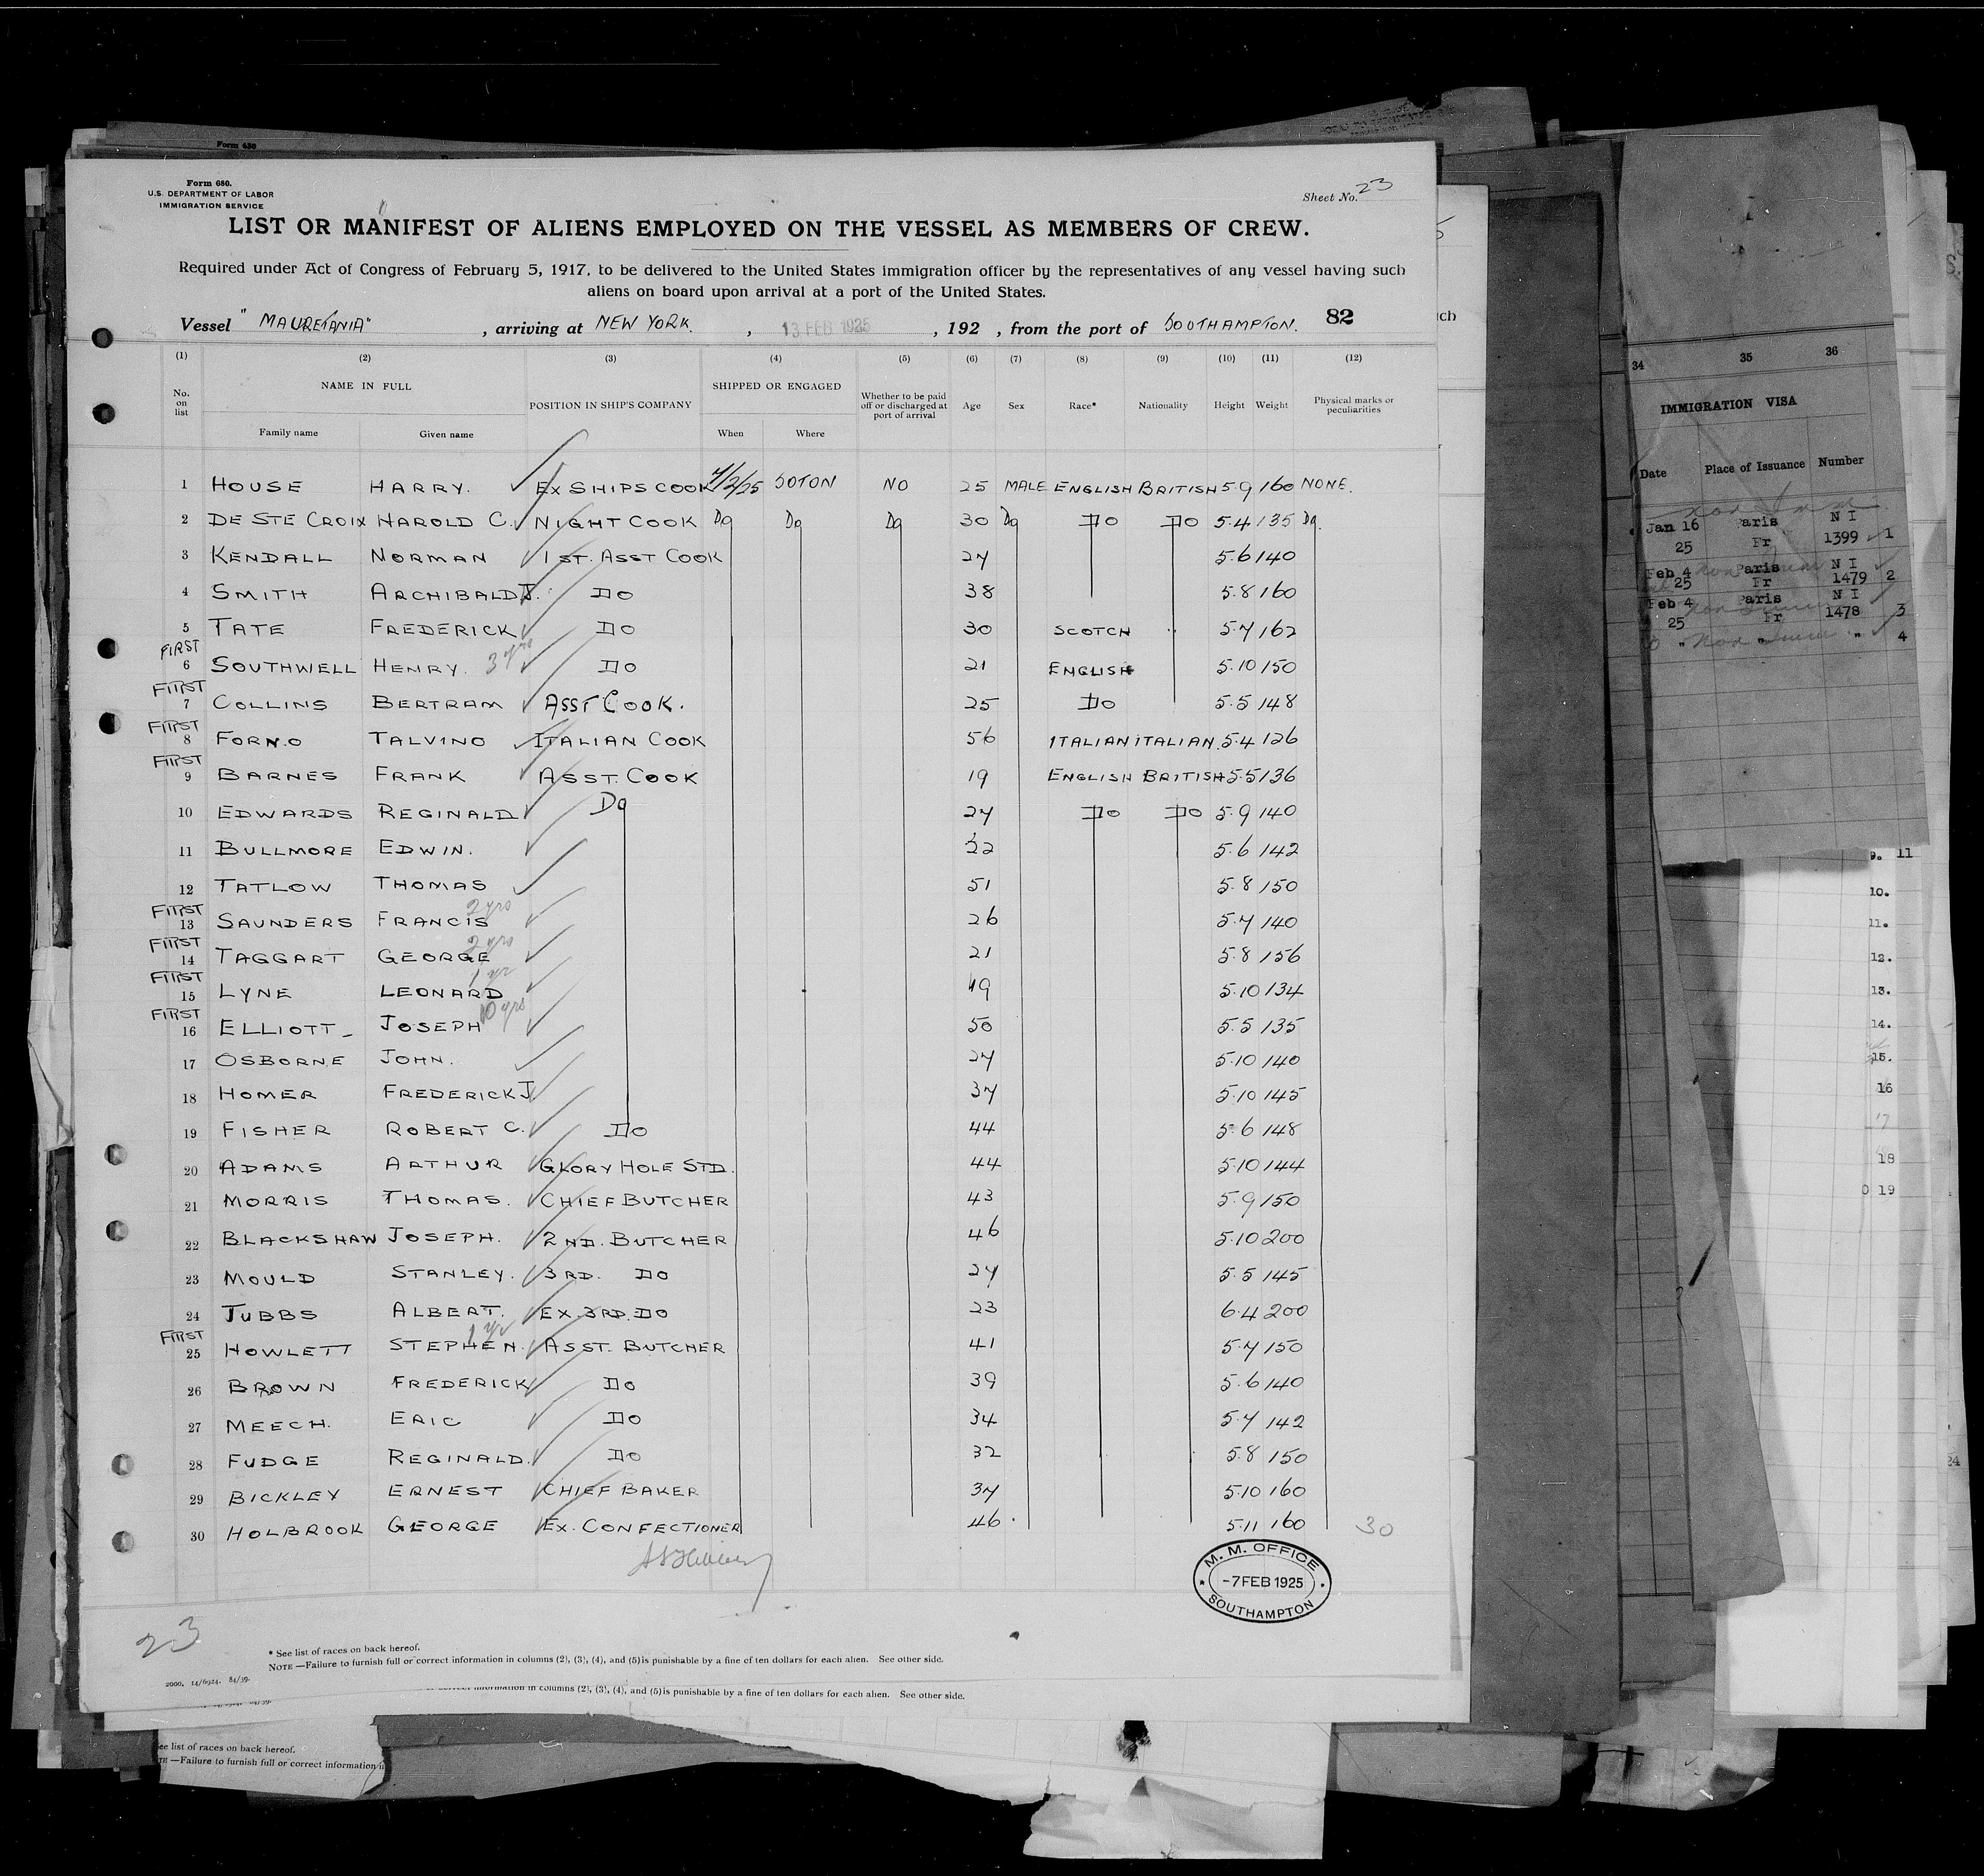 Form 630
Form 680.
U.S. DEPARTMENT OF LABOR
IMMIGRATION SERVICE
Sheet No. 23
LIST OR MANIFEST OF ALIENS EMPLOYED ON THE VESSEL AS MEMBERS OF CREW.
Required under Act of Congress of February 5, 1917, to be delivered to the United States immigration officer by the representatives of any vessel having such
aliens on board upon arrival at a port of the United States.
Vessel "MAURETANIA", arriving at NEW YORK., 13 FEB 1925, 192 , from the port of SOUTHAMPTON. 82
(1) (2) (3) (4) (5) (6) (7) (8) (9) (10) (11) (12)
No. on list NAME IN FULL POSITION IN SHIP'S COMPANY SHIPPED OR ENGAGED Whether to be paid off or discharged at port of arrival Age Sex Race* Nationality Height Weight Physical marks or peculiarities
Family name Given name When Where
1 HOUSE HARRY. EX SHIPS COOK 7/2/25 SOTON NO 25 MALE ENGLISH BRITISH 5.9 160 NONE.
2 DE STE CROIX HAROLD C. NIGHT COOK Do Do Do 30 Do Do Do 5.4 135 Do.
3 KENDALL NORMAN 1ST. ASST COOK 27 5.6 140
4 SMITH ARCHIBALD J. Do 38 5.8 160
5 TATE FREDERICK Do 30 SCOTCH " 5.7 162
FIRST
6 SOUTHWELL HENRY. 3 yrs Do 21 ENGLISH 5.10 150
FIRST
7 COLLINS BERTRAM ASST COOK. 25 Do 5.5 148
FIRST
8 FORNO TALVINO ITALIAN COOK 56 ITALIAN ITALIAN. 5.4 126
FIRST
9 BARNES FRANK ASST. COOK 19 ENGLISH BRITISH 5.5 136
10 EDWARDS REGINALD Do 27 Do Do 5.9 140
11 BULLMORE EDWIN. 22 5.6 142
12 TATLOW THOMAS 51 5.8 150
FIRST 2 yrs
13 SAUNDERS FRANCIS 26 5.7 140
FIRST 2 yrs
14 TAGGART GEORGE 21 5.8 156
FIRST 1 yr
15 LYNE LEONARD 19 5.10 134
FIRST 10 yrs
16 ELLIOTT JOSEPH 50 5.5 135
17 OSBORNE JOHN. 27 5.10 140
18 HOMER FREDERICK J 37 5.10 145
19 FISHER ROBERT C. Do 44 5.6 148
20 ADAMS ARTHUR GLORY HOLE STD. 44 5.10 144
21 MORRIS THOMAS. CHIEF BUTCHER 43 5.9 150
22 BLACKSHAW JOSEPH. 2ND. BUTCHER 46 5.10 200
23 MOULD STANLEY. 3RD. Do 27 5.5 145
24 TUBBS ALBERT. EX. 3RD. Do 23 6.4 200
FIRST 1 yr
25 HOWLETT STEPHEN. ASST. BUTCHER 41 5.7 150
26 BROWN FREDERICK Do 39 5.6 140
27 MEECH. ERIC Do 34 5.7 142
28 FUDGE REGINALD. Do 32 5.8 150
29 BICKLEY ERNEST CHIEF BAKER 37 5.10 160
30 HOLBROOK GEORGE EX. CONFECTIONER 46. 5.11 160 30
M. M. OFFICE
-7 FEB 1925
SOUTHAMPTON
23
* See list of races on back hereof.
NOTE —Failure to furnish full or correct information in columns (2), (3), (4), and (5) is punishable by a fine of ten dollars for each alien. See other side.
2000, 14/6924. 84/39.
in columns (2), (3), (4), and (5) is punishable by a fine of ten dollars for each alien. See other side.
ee list of races on back hereof.
TE —Failure to furnish full or correct information
ich
34 35 36
IMMIGRATION VISA
Date Place of Issuance Number
Jan 16 Paris N I
25 Fr 1399 1
Feb 4 Paris N I
25 Fr 1479 2
Feb 4 Paris N I
25 Fr 1478 3
" " " 4
9. 11
10.
11.
12.
13.
14.
15.
16
17
18
0 19
24